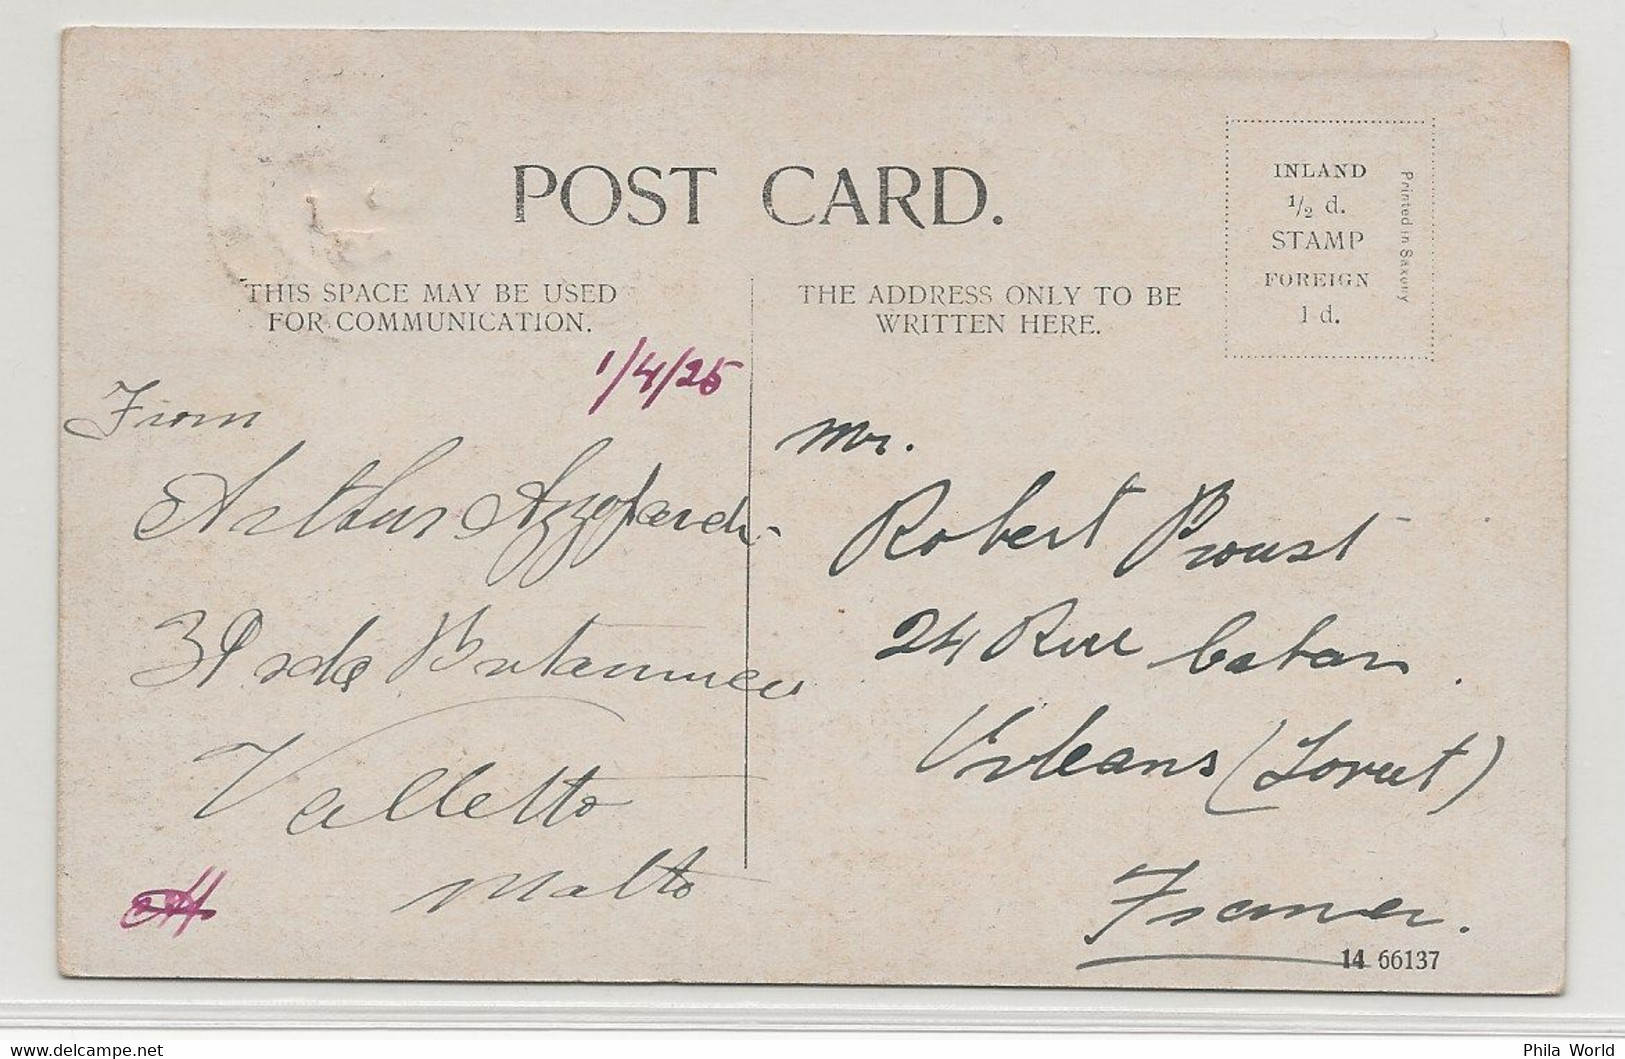 POST CARD.
INLAND
1/2 d.
STAMP
FOREIGN
1 d.
Printed in Saxony
THIS SPACE MAY BE USED
FOR COMMUNICATION.
THE ADDRESS ONLY TO BE
WRITTEN HERE.
1/4/25
From
Arthur Azzopardi
Valletta
Malta
Mr.
Robert Proust
24 Rue
Orleans (Loiret)
France.
14 66137
www.delcampe.net
Phila World